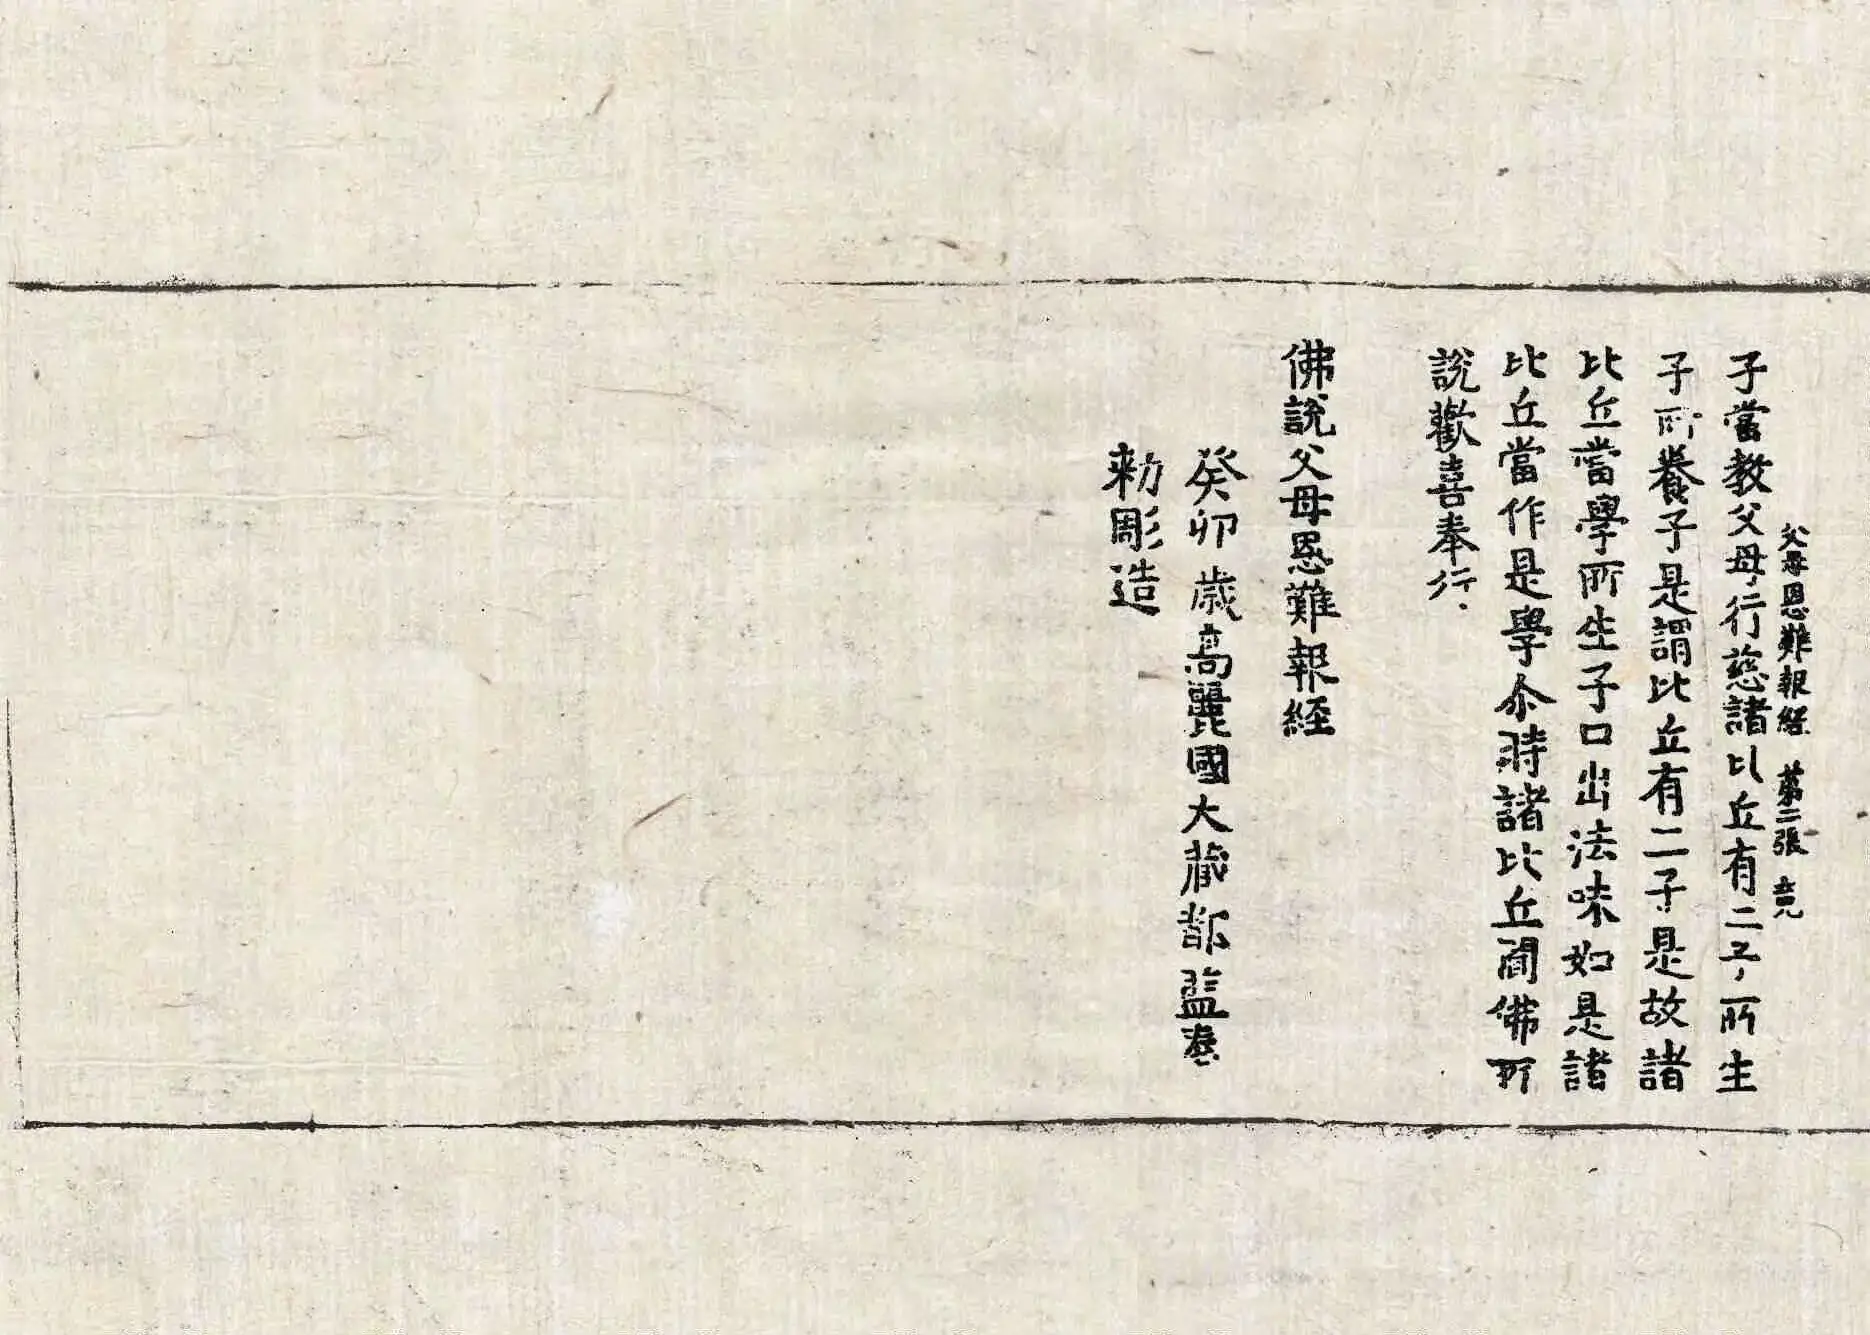 父母恩難報經 第二張
子當教父母行慈諸比丘有二子所生
子所養子是謂比丘有二子是故諸
比丘當學所生子口出法味如是諸
比丘當作是學尒時諸比丘聞佛所
說歡喜奉行
佛說父母恩難報經
癸卯歲高麗國大藏都監奉
勑彫造